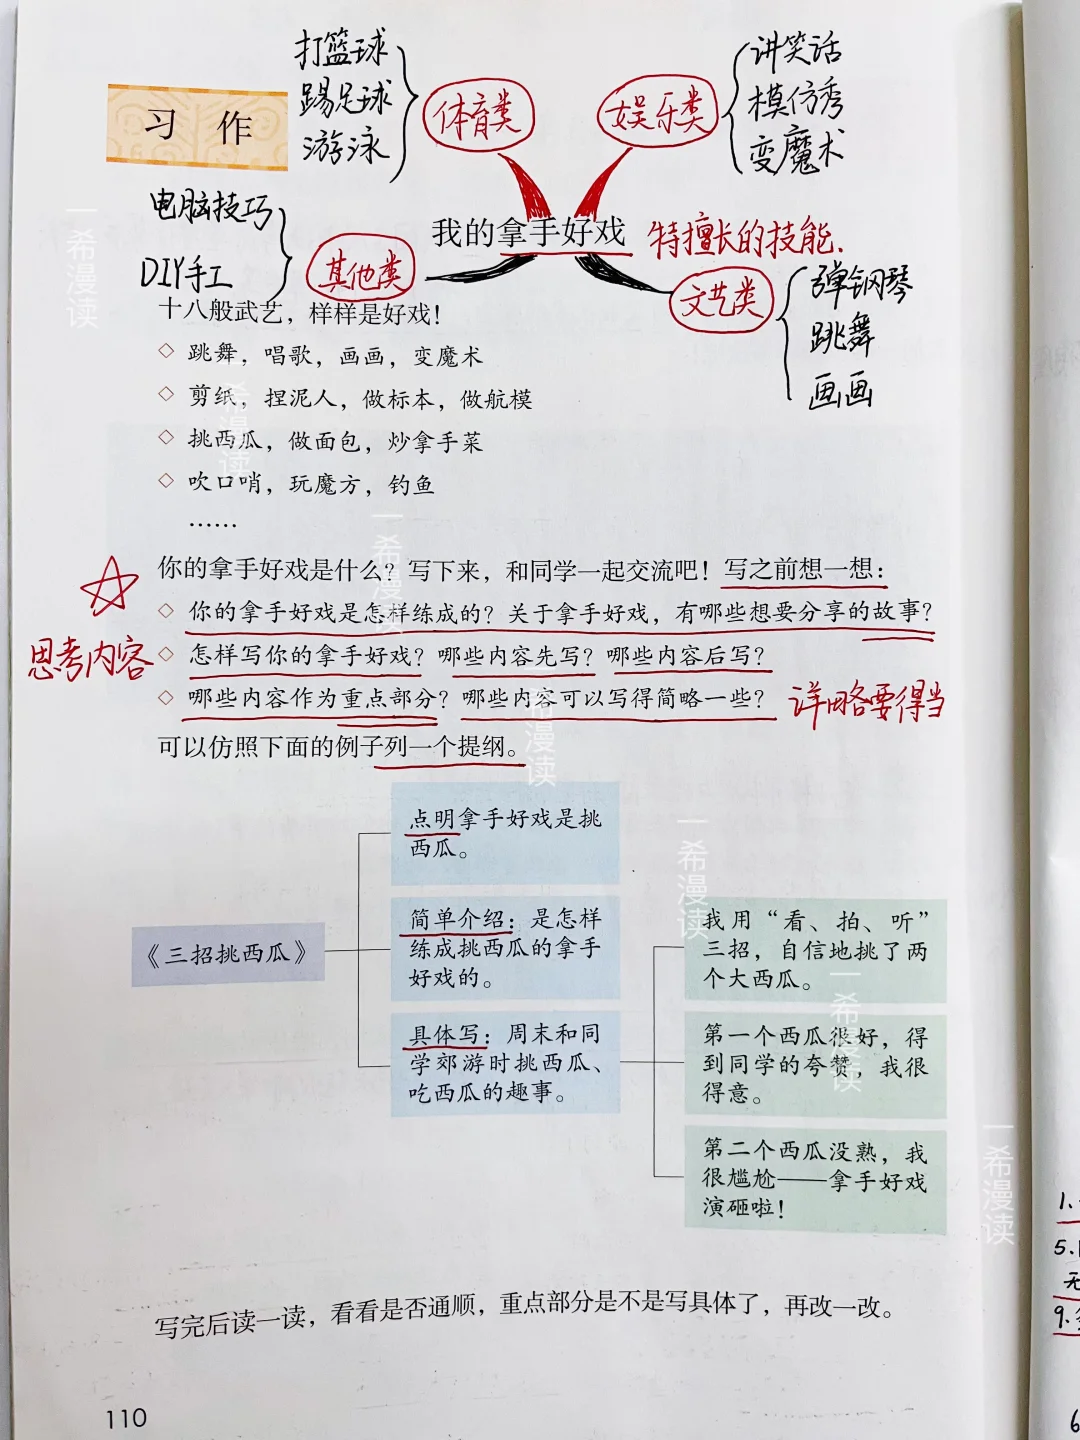 打篮球
踢足球
游泳
体育类
娱乐类
讲笑话
模仿秀
变魔术
习作
电脑技巧
DIY手工
其他类
我的拿手好戏
特擅长的技能.
文艺类
弹钢琴
跳舞
画画
十八般武艺，样样是好戏！
◇ 跳舞，唱歌，画画，变魔术
◇ 剪纸，捏泥人，做标本，做航模
◇ 挑西瓜，做面包，炒拿手菜
◇ 吹口哨，玩魔方，钓鱼
……
你的拿手好戏是什么？写下来，和同学一起交流吧！写之前想一想：
◇ 你的拿手好戏是怎样练成的？关于拿手好戏，有哪些想要分享的故事？
思考内容
◇ 怎样写你的拿手好戏？哪些内容先写？哪些内容后写？
◇ 哪些内容作为重点部分？哪些内容可以写得简略一些？
详略要得当
可以仿照下面的例子列一个提纲。
《三招挑西瓜》
点明拿手好戏是挑
西瓜。
简单介绍：是怎样
练成挑西瓜的拿手
好戏的。
具体写：周末和同
学郊游时挑西瓜、
吃西瓜的趣事。
我用“看、拍、听”
三招，自信地挑了两
个大西瓜。
第一个西瓜很好，得
到同学的夸赞，我很
得意。
第二个西瓜没熟，我
很尴尬——拿手好戏
演砸啦！
写完后读一读，看看是否通顺，重点部分是不是写具体了，再改一改。
110
一希漫读
一希漫读
一希漫读
一希漫读
一希漫读
一希漫读
一希漫读
1.
5.
9.
6